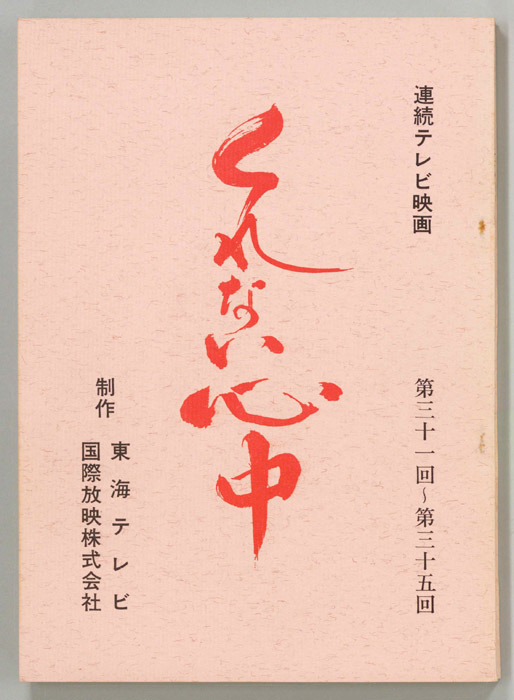 連続テレビ映画
第三十一回～第三十五回
くれない心中
制作
東海テレビ
国際放映株式会社